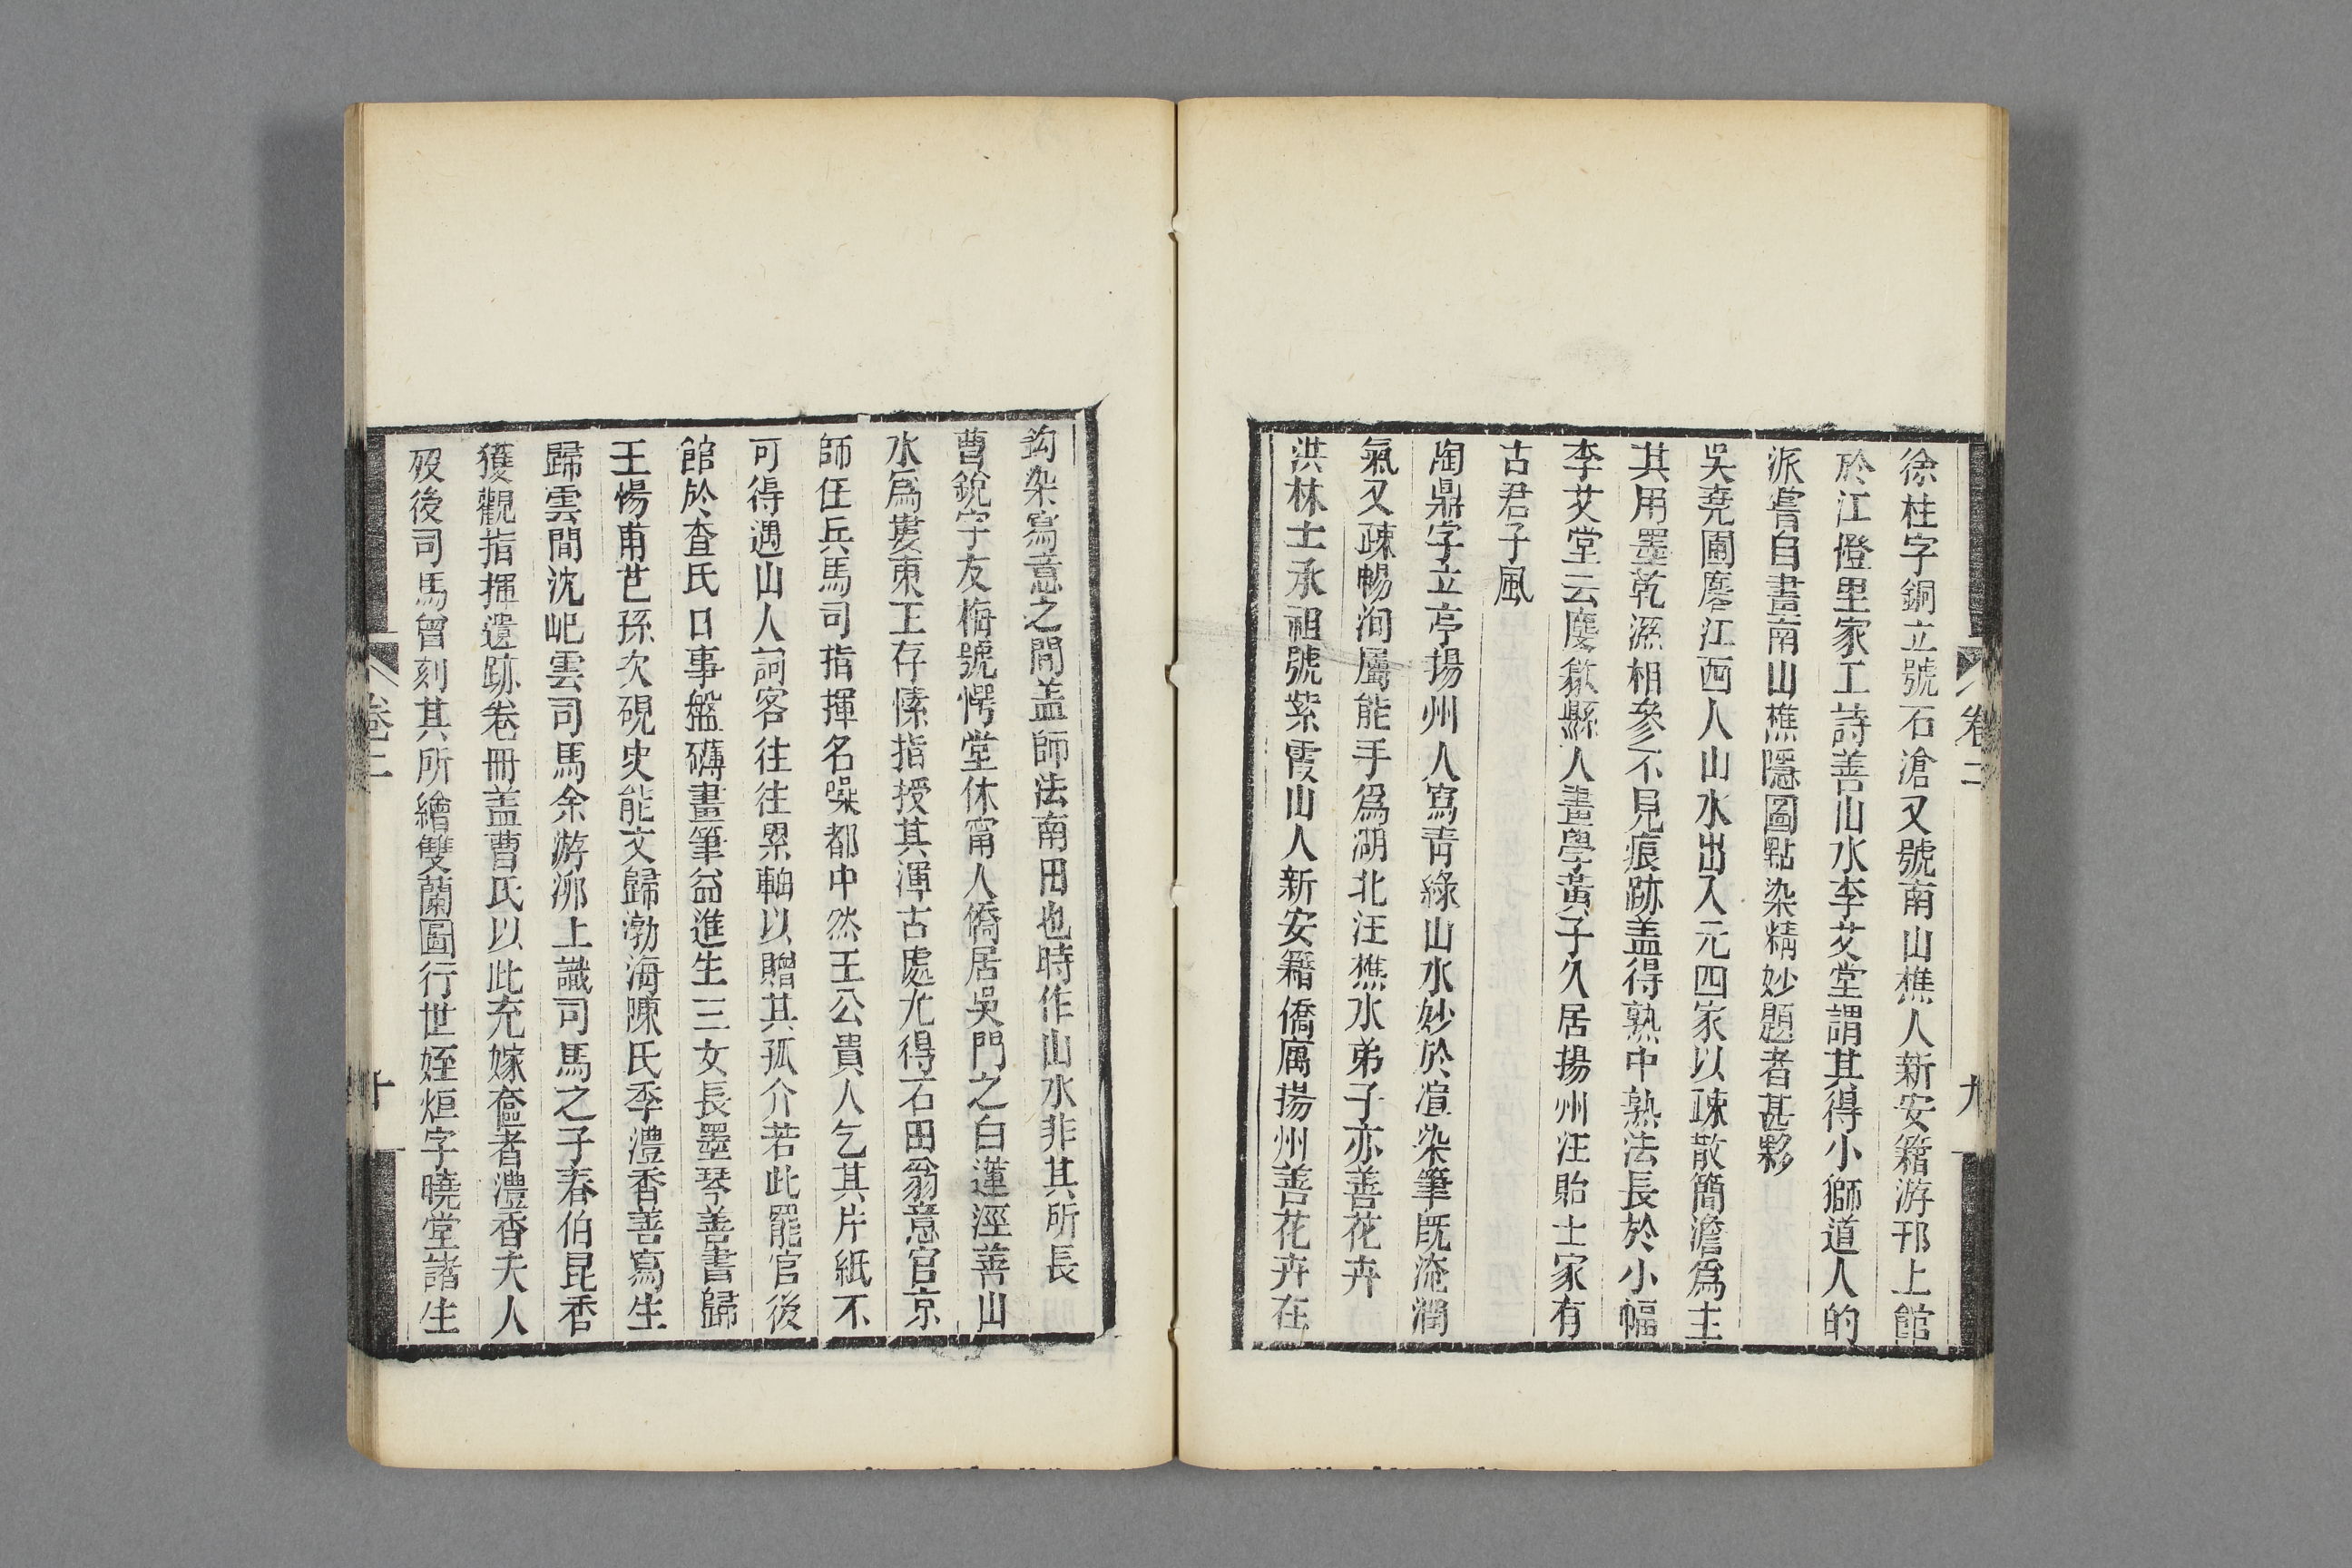 徐柱字銅立號石滄又號南山樵人新安籍游邗上館
於江橙里家工詩善山水李艾堂謂其得小獅道人的
派嘗自畫南山樵隱圖點染精妙題者甚夥
吳堯圃麐江西人山水出入元四家以疎散簡澹爲主
其用墨乾濕相參不見痕跡盖得熟中熟法長於小幅
李艾堂云麐歙縣人畫學黃子久居揚州汪貽士家有
古君子風
陶鼎字立亭揚州人寫靑綠山水妙於渲染筆旣淹潤
氣又疎暢洵屬能手爲湖北汪樵水弟子亦善花卉
洪林士承祖號紫霞山人新安籍僑寓揚州善花卉在
卷二
九
鈎染寫意之間盖師法南田也時作山水非其所長
曹銳字友梅號愕堂休甯人僑居吳門之白蓮涇善山
水爲婁東王存愫指授其渾古處尤得石田翁意官京
師任兵馬司指揮名噪都中然王公貴人乞其片紙不
可得遇山人詞客往往累軸以贈其孤介若此罷官後
館於查氏口事盤礴畫筆益進生三女長墨琴善書歸
王惕甫芑孫次硯史能文歸渤海陳氏季澧香善寫生
歸雲間沈屺雲司馬余游泖上識司馬之子春伯昆香
獲觀指揮遺跡卷冊盖曹氏以此充嫁奩者澧香夫人
歿後司馬曾刻其所繪雙蘭圖行世姪烜字曉堂諸生
卷二
十